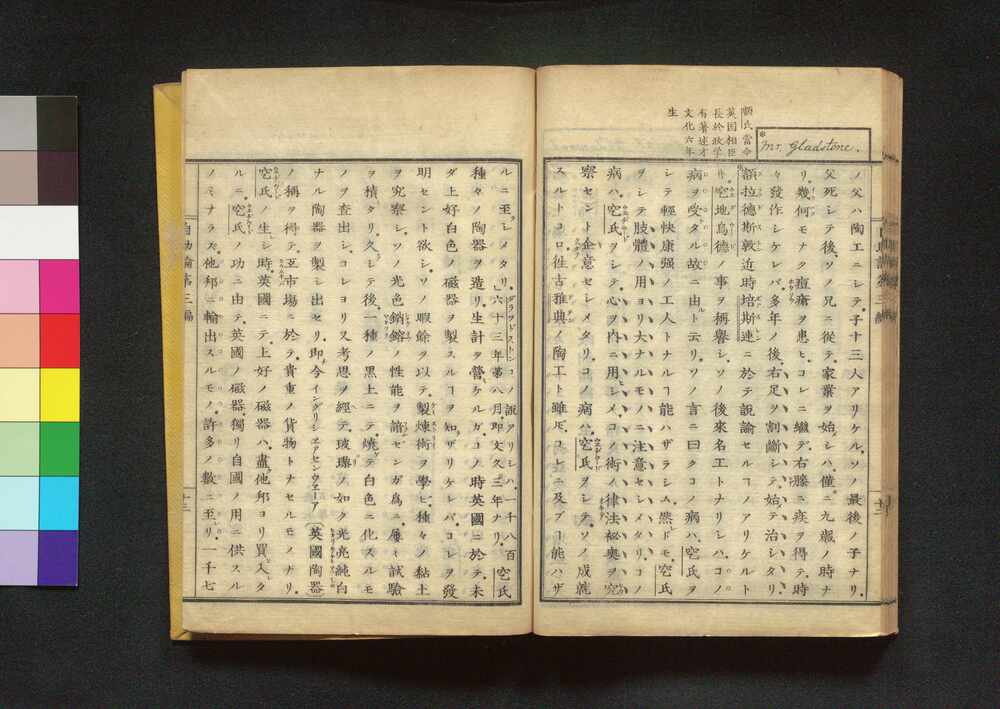 Mr. Gladstone.
額氏當今
英国相臣
長於政学
有著述才
文化六年
生
ノ父ハ陶工ニシテ子十三人アリケル。ソノ最後ノ子ナリ。
父死シテ後ソノ兄ニ從テ家業ヲ始シハ僅ニ九歳ノ時ナ
リ。幾何モナク痘瘡ヲ患ヒ。コレニ繼デ右膝ニ疾ヲ得テ時
々發作シケレバ多年ノ後右足ヲ割斷シテ始テ治シタリ
額拉德斯敦近時培斯連ニ於テ説諭セルコアリケルト
キ空地烏德ノ事ヲ稱譽シ。ソノ後來名工トナリシハ。コノ
病ヲ受タル故ナニ由ト云リ。ソノ言ニ曰クコノ病ハ空氏ヲ
シテ輕快康强ノ工人トナルコ能ハザラシム。然ドモ空氏
ヲシテ肢體ノ用ヨリ大ナルモノニ注意セシメタリ。コノ
病ハ空氏ヲシテ心ヲ内ニ用シメ。コノ術ノ律法祕奥ヲ究
察セント企意セシメタリ。コノ病ハ空氏ヲシテソノ成就
スルトコロ。徃古雅典ノ陶工ト雖モコレニ及ブコ能ハザ
ルニ至シメタリ。グラツドストンコノ説アリシハ一千八百
六十三年第八月即文久三年ナリ。空氏
種々ノ陶器ヲ造リ生計ヲ營ケルガ。コノ時英國ニ於テ未
ダ上好白色ノ磁器ヲ製スルコヲ知ザリケレバ。コレヲ發
明セント欲シ。ソノ暇餘ヲ以テ製煉術ヲ學ヒ種々ノ黏土
ヲ究察シ。ソノ光色銷鎔ノ性能ヲ諳センガ爲ニ屢々試驗
ヲ積タリ。久シテ後一種ノ黒土ニテ燒テ白色ニ化スルモ
ノヲ査出シ。コレヨリ又考思ヲ經テ玻璃ノ如ク光亮純白
ナル陶器ヲ製シ出セリ。即今イングリシヱアセンウエーア（英國陶器）
ノ稱ヲ得テ互市場ニ於テ貴重ノ貨物トナセルモノナリ。
空氏ノ生シ時英國ニテ上好ノ磁器ハ盡他邦ヨリ買入タ
ルニ。空氏ノ功ニ由テ英國ノ磁器獨リ自國ノ用ニ供スル
ノミナラズ。他邦ニ輸出スルモノ許多ノ數ニ至リ。一千七
自助論第三編
十三